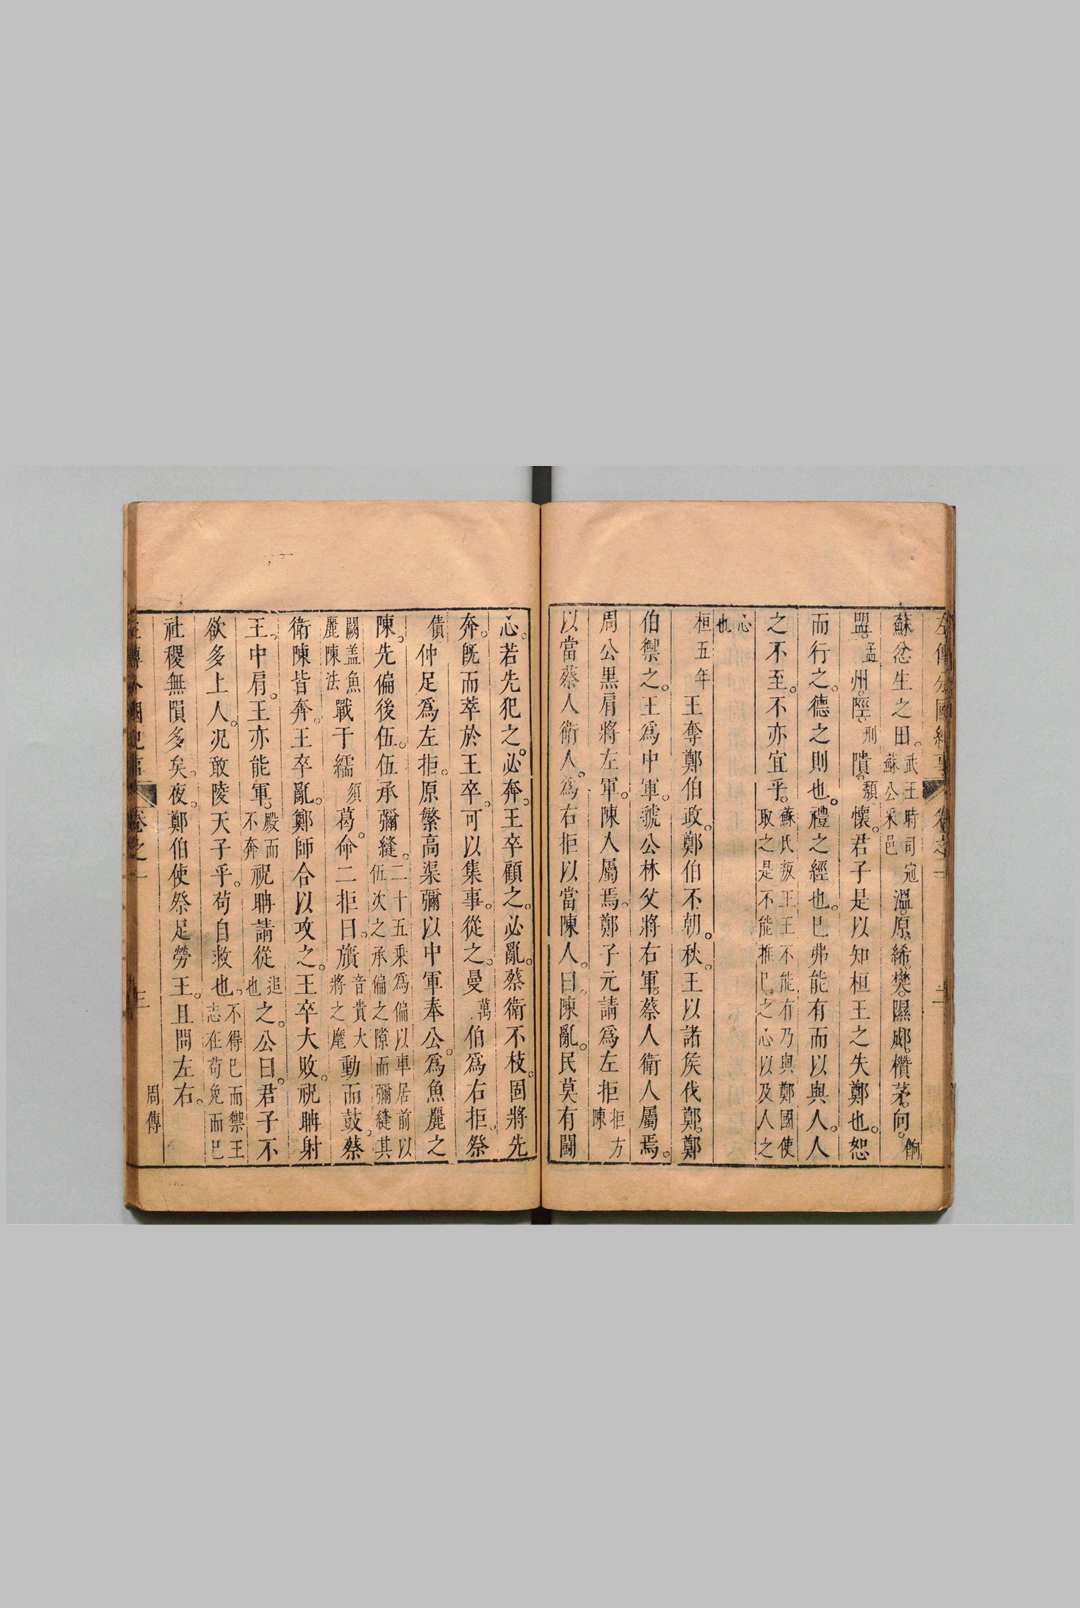 左傳分國紀事 卷之一 二
蘇忿生之田。武王時司寇蘇公采邑溫。原。絺。樊。隰郕。欑茅。向。餉
盟。孟州。陘。刑隤。頹懷。君子是以知桓王之失鄭也。恕
而行之。德之則也。禮之經也。已弗能有而以與人。人
之不至。不亦宜乎。蘇氏叛王王不能有乃與鄭國使取之是不能推已之心以及人之
心也
桓五年 王奪鄭伯政。鄭伯不朝。秋。王以諸侯伐鄭。鄭
伯禦之。王爲中軍。虢公林父將右軍。蔡人衛人屬焉。
周公黑肩將左軍。陳人屬焉。鄭子元請爲左拒拒方陳
以當蔡人衛人。爲右拒以當陳人。曰陳亂。民莫有鬭
心。若先犯之。必奔。王卒顧之。必亂。蔡衛不枝。固將先
奔。旣而萃於王卒。可以集事。從之。曼萬伯爲右拒。祭
債仲足爲左拒。原繁高渠彌以中軍奉公。爲魚麗之
陳。先偏後伍。伍承彌縫。二十五乘爲偏以車居前以伍次之承偏之隙而彌縫其
闕盖魚麗陳法戰于繻須葛。命二拒曰。旝音貴大將之麾動而鼓。蔡
衛陳皆奔。王卒亂。鄭師合以攻之。王卒大敗。祝聃射
王。中肩。王亦能軍。殿而不奔祝聃請從追也之。公曰。君子不
欲多上人。况敢陵天子乎。苟自救也。不得已而禦王志在苟免而已
社稷無隕多矣。夜。鄭伯使祭足勞王。且問左右。
左傳分國紀事 卷之一 三 周傳